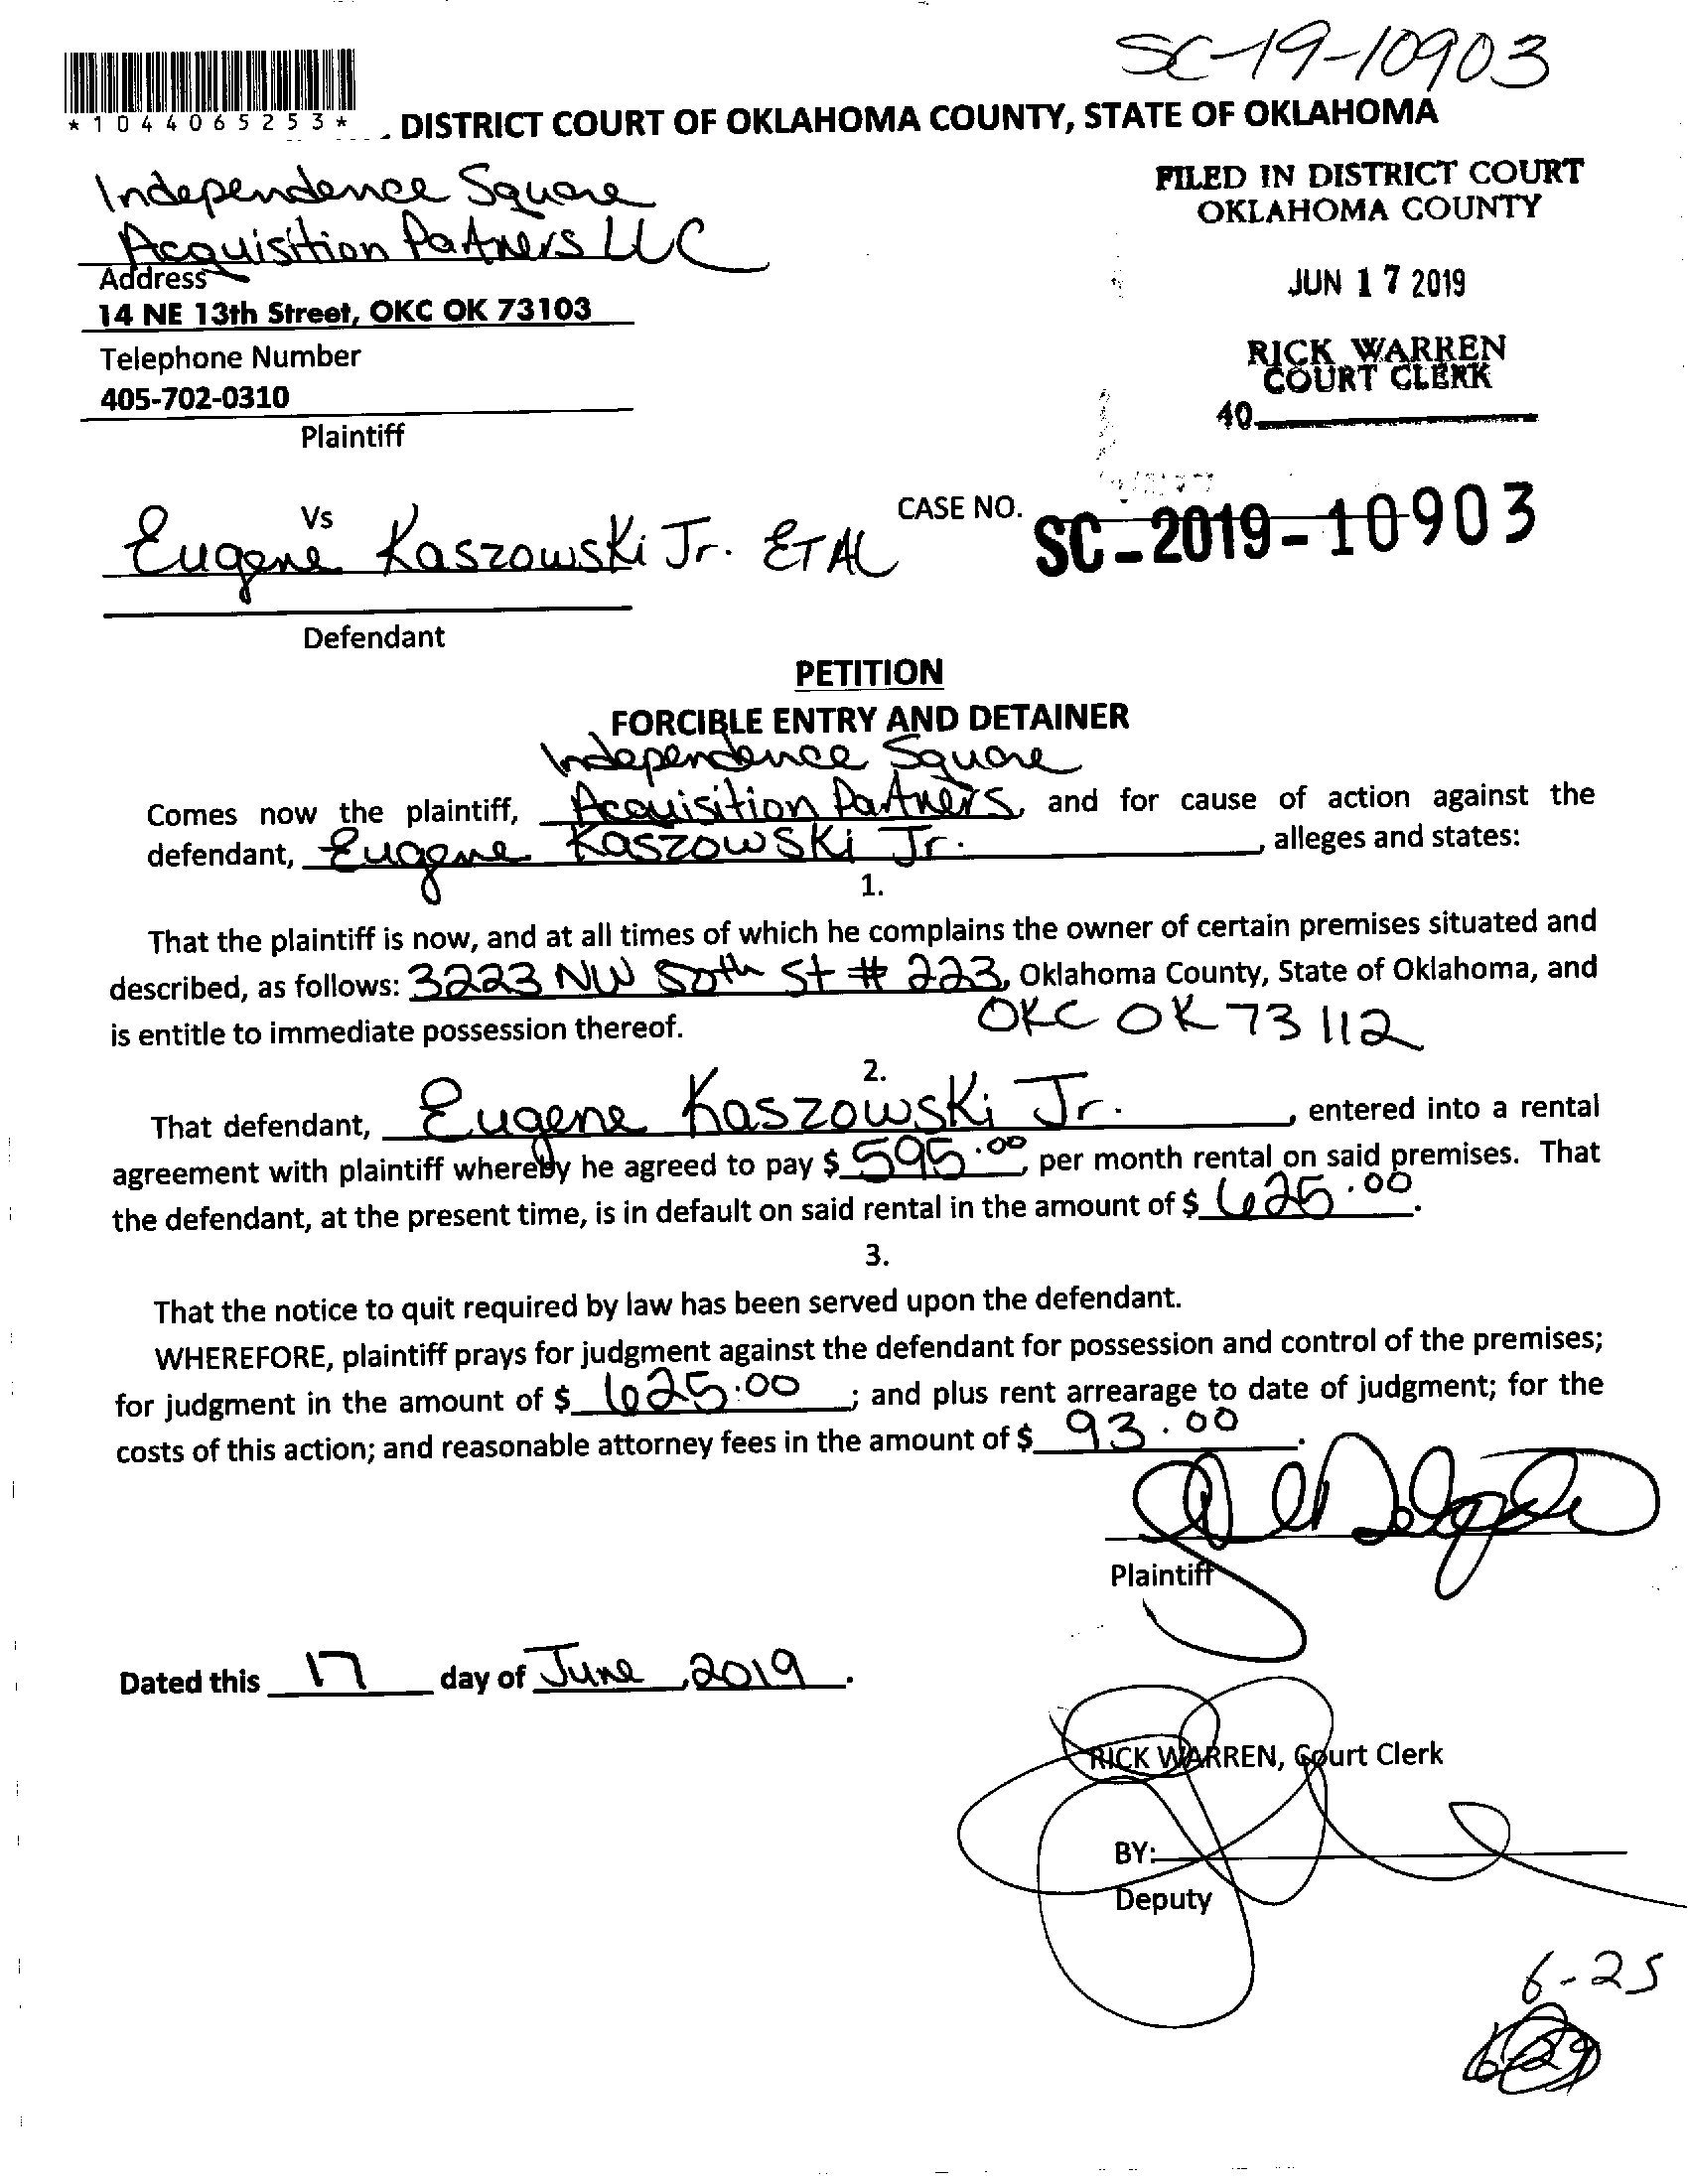 SC-19-10903
*1044065253*
DISTRICT COURT OF OKLAHOMA COUNTY, STATE OF OKLAHOMA
Independence Square
Acquisition Partners LLC
Address
14 NE 13th Street, OKC OK 73103
Telephone Number
405-702-0310
Plaintiff
FILED IN DISTRICT COURT
OKLAHOMA COUNTY
JUN 17 2019
RICK WARREN
COURT CLERK
40
Vs
Eugene Kaszowski Jr. ET AL
CASE NO. SC-2019-10903
Defendant
PETITION
FORCIBLE ENTRY AND DETAINER
Independence Square
Comes now the plaintiff, Acquisition Partners, and for cause of action against the
defendant, Eugene Kaszowski Jr. , alleges and states:
1.
That the plaintiff is now, and at all times of which he complains the owner of certain premises situated and
described, as follows: 3223 NW 50th St # 223, Oklahoma County, State of Oklahoma, and
is entitle to immediate possession thereof. OKC OK 73112
2.
That defendant, Eugene Kaszowski Jr. , entered into a rental
agreement with plaintiff whereby he agreed to pay $ 595.00 per month rental on said premises. That
the defendant, at the present time, is in default on said rental in the amount of $ 625.00.
3.
That the notice to quit required by law has been served upon the defendant.
WHEREFORE, plaintiff prays for judgment against the defendant for possession and control of the premises;
for judgment in the amount of $ 625.00 ; and plus rent arrearage to date of judgment; for the
costs of this action; and reasonable attorney fees in the amount of $ 93.00.
Plaintiff
Dated this 17 day of June, 2019.
RICK WARREN, Court Clerk
BY:
Deputy
6-25